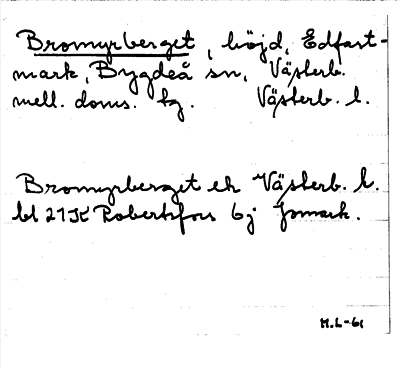 Bromyrberget, höjd, Edfast-
mark, Bygdeå sn, Västerb.
mell. doms. tg. Västerb. l.
Bromyrberget ek Västerb. l.
bl 21K Robertsfors 6j
M.L-61